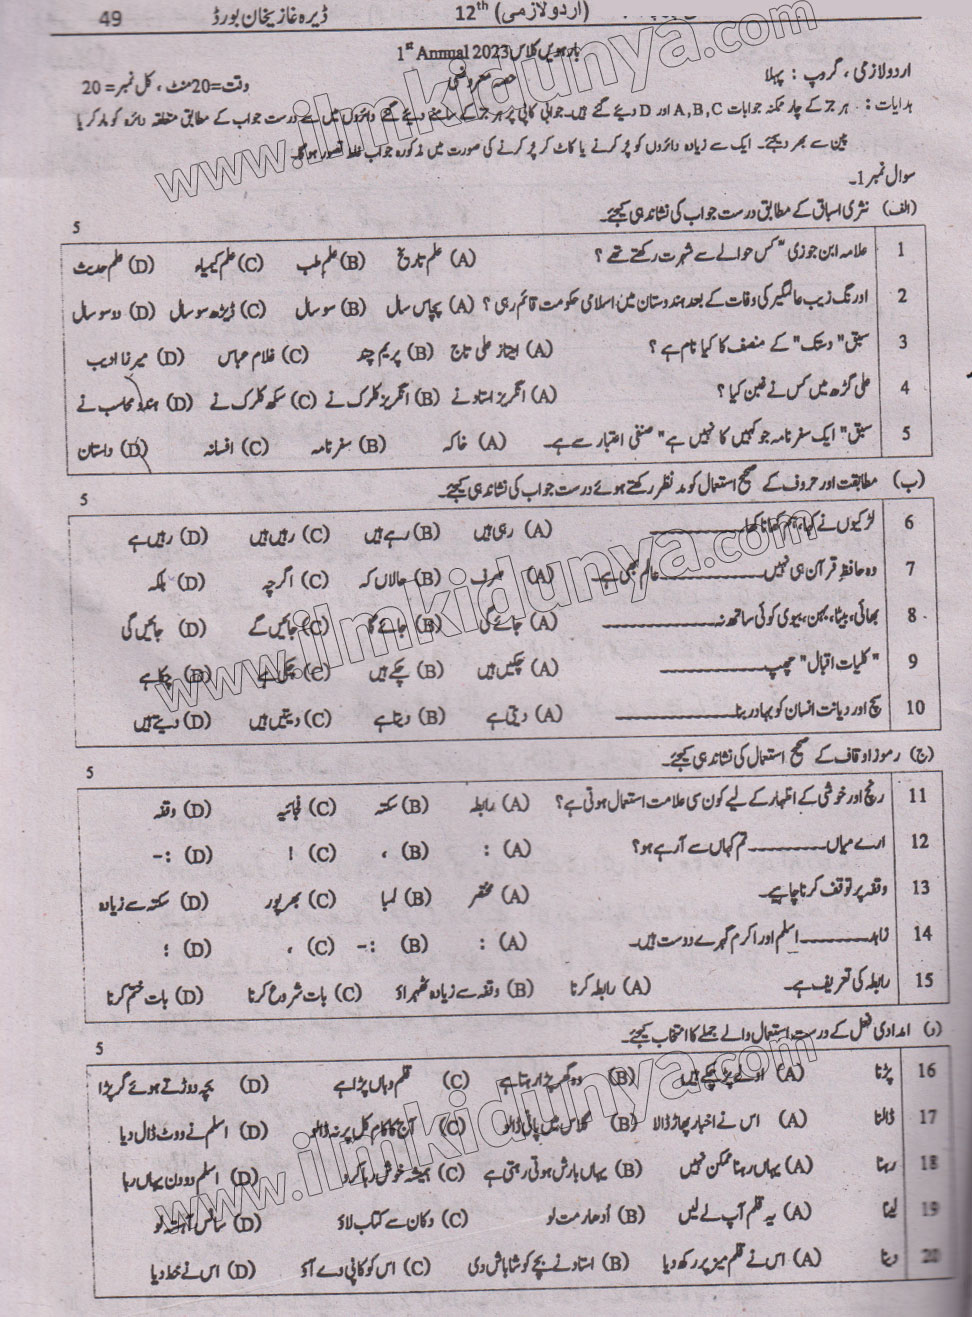 49 ڈیرہ غازیخان بورڈ 12th (اردو لازمی)
بارہویں کلاس 1st Annual 2023
اردو لازمی ، گروپ : پہلا حصہ معروضی وقت=20 منٹ ، کل نمبر= 20
ہدایات : ہر جز کے چار ممکنہ جوابات A,B,C اور D دیئے گئے ہیں۔ جوابی کاپی پر ہر جز کے سامنے دیئے گئے دائروں میں سے درست جواب کے مطابق متعلقہ دائرہ کو مارکر یا
پین سے بھر دیجئے۔ ایک سے زیادہ دائروں کو پُر کرنے یا کاٹ کر پُر کرنے کی صورت میں مذکورہ جواب غلط تصور ہوگا۔
سوال نمبر1۔
(الف) نثری اسباق کے مطابق درست جواب کی نشاندہی کیجئے۔ 5
1 علامہ ابن جوزی" کس حوالے سے شہرت رکھتے تھے ؟ (A) علم تاریخ (B) علم طب (C) علم کیمیاء (D) علم حدیث
2 اورنگ زیب عالمگیر کی وفات کے بعد ہندوستان میں اسلامی حکومت قائم رہی ؟ (A) پچاس سال (B) سو سال (C) ڈیڑھ سو سال (D) دو سو سال
3 سبق" دستک" کے مصنف کا کیا نام ہے ؟ (A) امتیاز علی تاج (B) پریم چند (C) غلام عباس (D) میرزا ادیب
4 علی گڑھ میں کس نے غبن کیا ؟ (A) انگریز استاد نے (B) انگریز کلرک نے (C) سکھ کلرک نے (D) ہندو محاسب نے
5 سبق" ایک سفر نامہ جو کہیں کا نہیں ہے" صنفی اعتبار سے ہے۔ (A) خاکہ (B) سفر نامہ (C) افسانہ (D) داستان
(ب) مطابقت اور حروف کے صحیح استعمال کو مدنظر رکھتے ہوئے درست جواب کی نشاندہی کیجئے۔ 5
6 لڑکیوں نے کہا، ہم کھانا کھا ________ (A) رہی ہیں (B) رہے ہیں (C) رہیں ہیں (D) رہیں ہے
7 وہ حافظِ قرآن ہی نہیں ________ عالم بھی ہے۔ (A) صرف (B) حالاں کہ (C) اگرچہ (D) بلکہ
8 بھائی، بیٹا، بہن، بیوی کوئی ساتھ نہ ________ (A) جائے گی (B) جائے گا (C) جائیں گے (D) جائیں گی
9 "کلیات اقبال" چھپ ________ (A) چکیں ہیں (B) چکے ہیں (C) چکی ہے (D) چکا ہے
10 سچ اور دیانت انسان کو بہادر بنا ________ (A) دیتی ہے (B) دیتا ہے (C) دیتیں ہیں (D) دیتے ہیں
(ج) رموز اوقاف کے صحیح استعمال کی نشاندہی کیجئے۔ 5
11 رنج اور خوشی کے اظہار کے لیے کون سی علامت استعمال ہوتی ہے؟ (A) رابطہ (B) سکتہ (C) فجائیہ (D) وقفہ
12 ارے میاں ________ تم کہاں سے آ رہے ہو؟ (A) : (B) ، (C) ! (D) :-
13 وقفہ پر توقف کرنا چاہیے۔ (A) مختصر (B) لمبا (C) بھرپور (D) سکتہ سے زیادہ
14 زاہد ________ اسلم اور اکرم گہرے دوست ہیں۔ (A) : (B) :- (C) ، (D) ؛
15 رابطہ کی تعریف ہے۔ (A) رابطہ کرنا (B) وقفہ سے زیادہ ٹھہراؤ (C) بات شروع کرنا (D) بات ختم کرنا
(د) امدادی فعل کے درست استعمال والے جملے کا انتخاب کیجئے۔ 5
16 پڑنا (A) اولے پڑ چکے ہیں (B) وہ گھر پڑا رہتا ہے (C) قلم وہاں پڑا ہے (D) بچہ دوڑتے ہوئے گر پڑا
17 ڈالنا (A) اس نے اخبار پھاڑ ڈالا (B) گلاس میں پانی ڈالو (C) آج کا کام کل پر نہ ڈالو (D) اسلم نے ووٹ ڈال دیا
18 رہنا (A) یہاں رہنا ممکن نہیں (B) یہاں بارش ہوتی رہتی ہے (C) ہمیشہ خوش رہا کرو (D) اسلم دو دن یہاں رہا
19 لینا (A) یہ قلم آپ لے لیں (B) اُدھار مت لو (C) دکان سے کتاب لاؤ (D) سانس آہستہ لو
20 دینا (A) اس نے قلم میز پر رکھ دیا (B) استاد نے بچے کو شاباش دی (C) اس کو کاپی دے آؤ (D) اس نے خط دیا
www.ilmkidunya.com
www.ilmkidunya.com
www.ilmkidunya.com